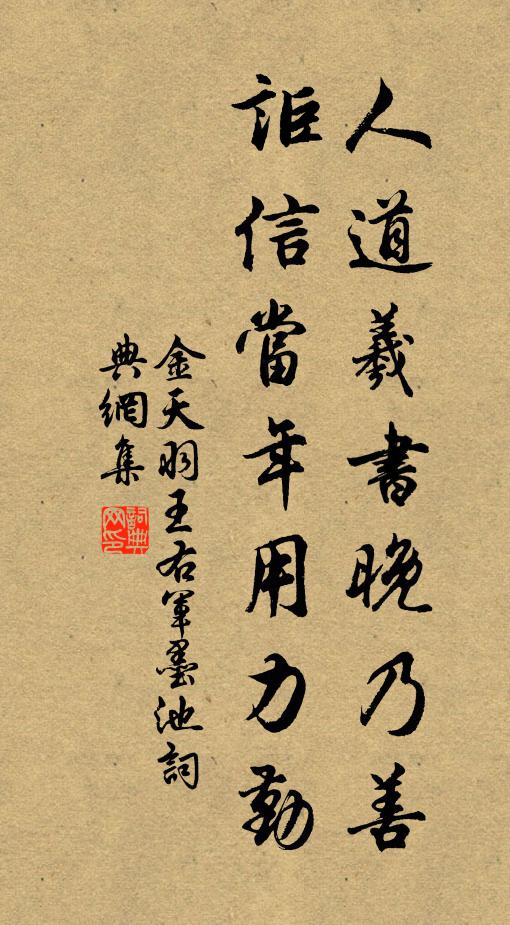 人道羲書晚乃善
詎信當年用力勤
金天羽王右軍墨池詞
典網集
詞典
网印